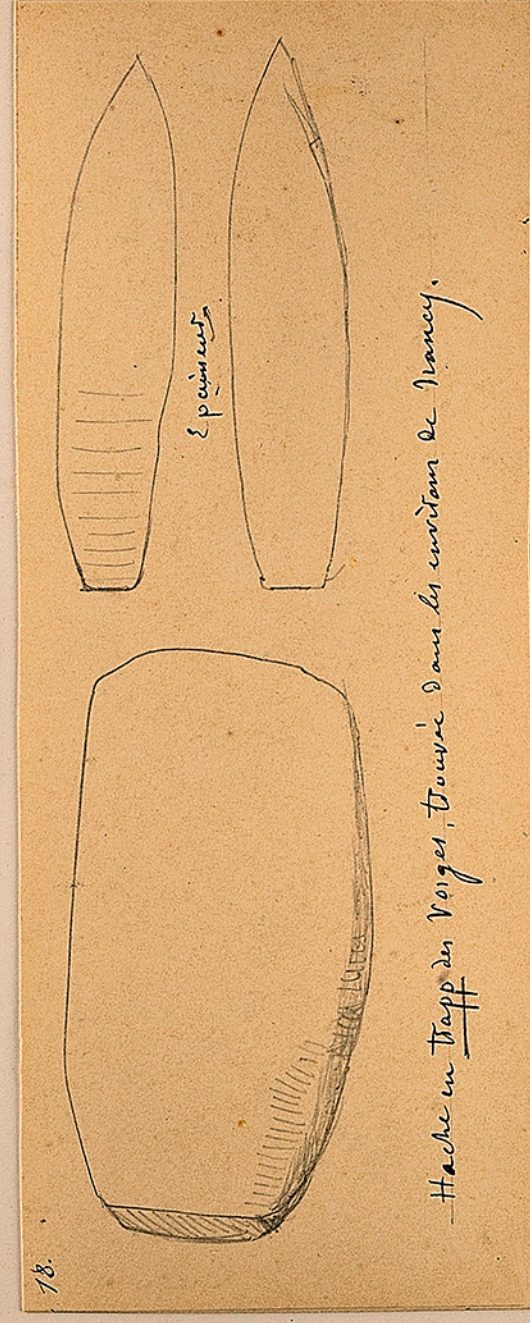 18.
Epaisseur
Hache en trapp des Vosges, trouvée dans les environs de Nancy.